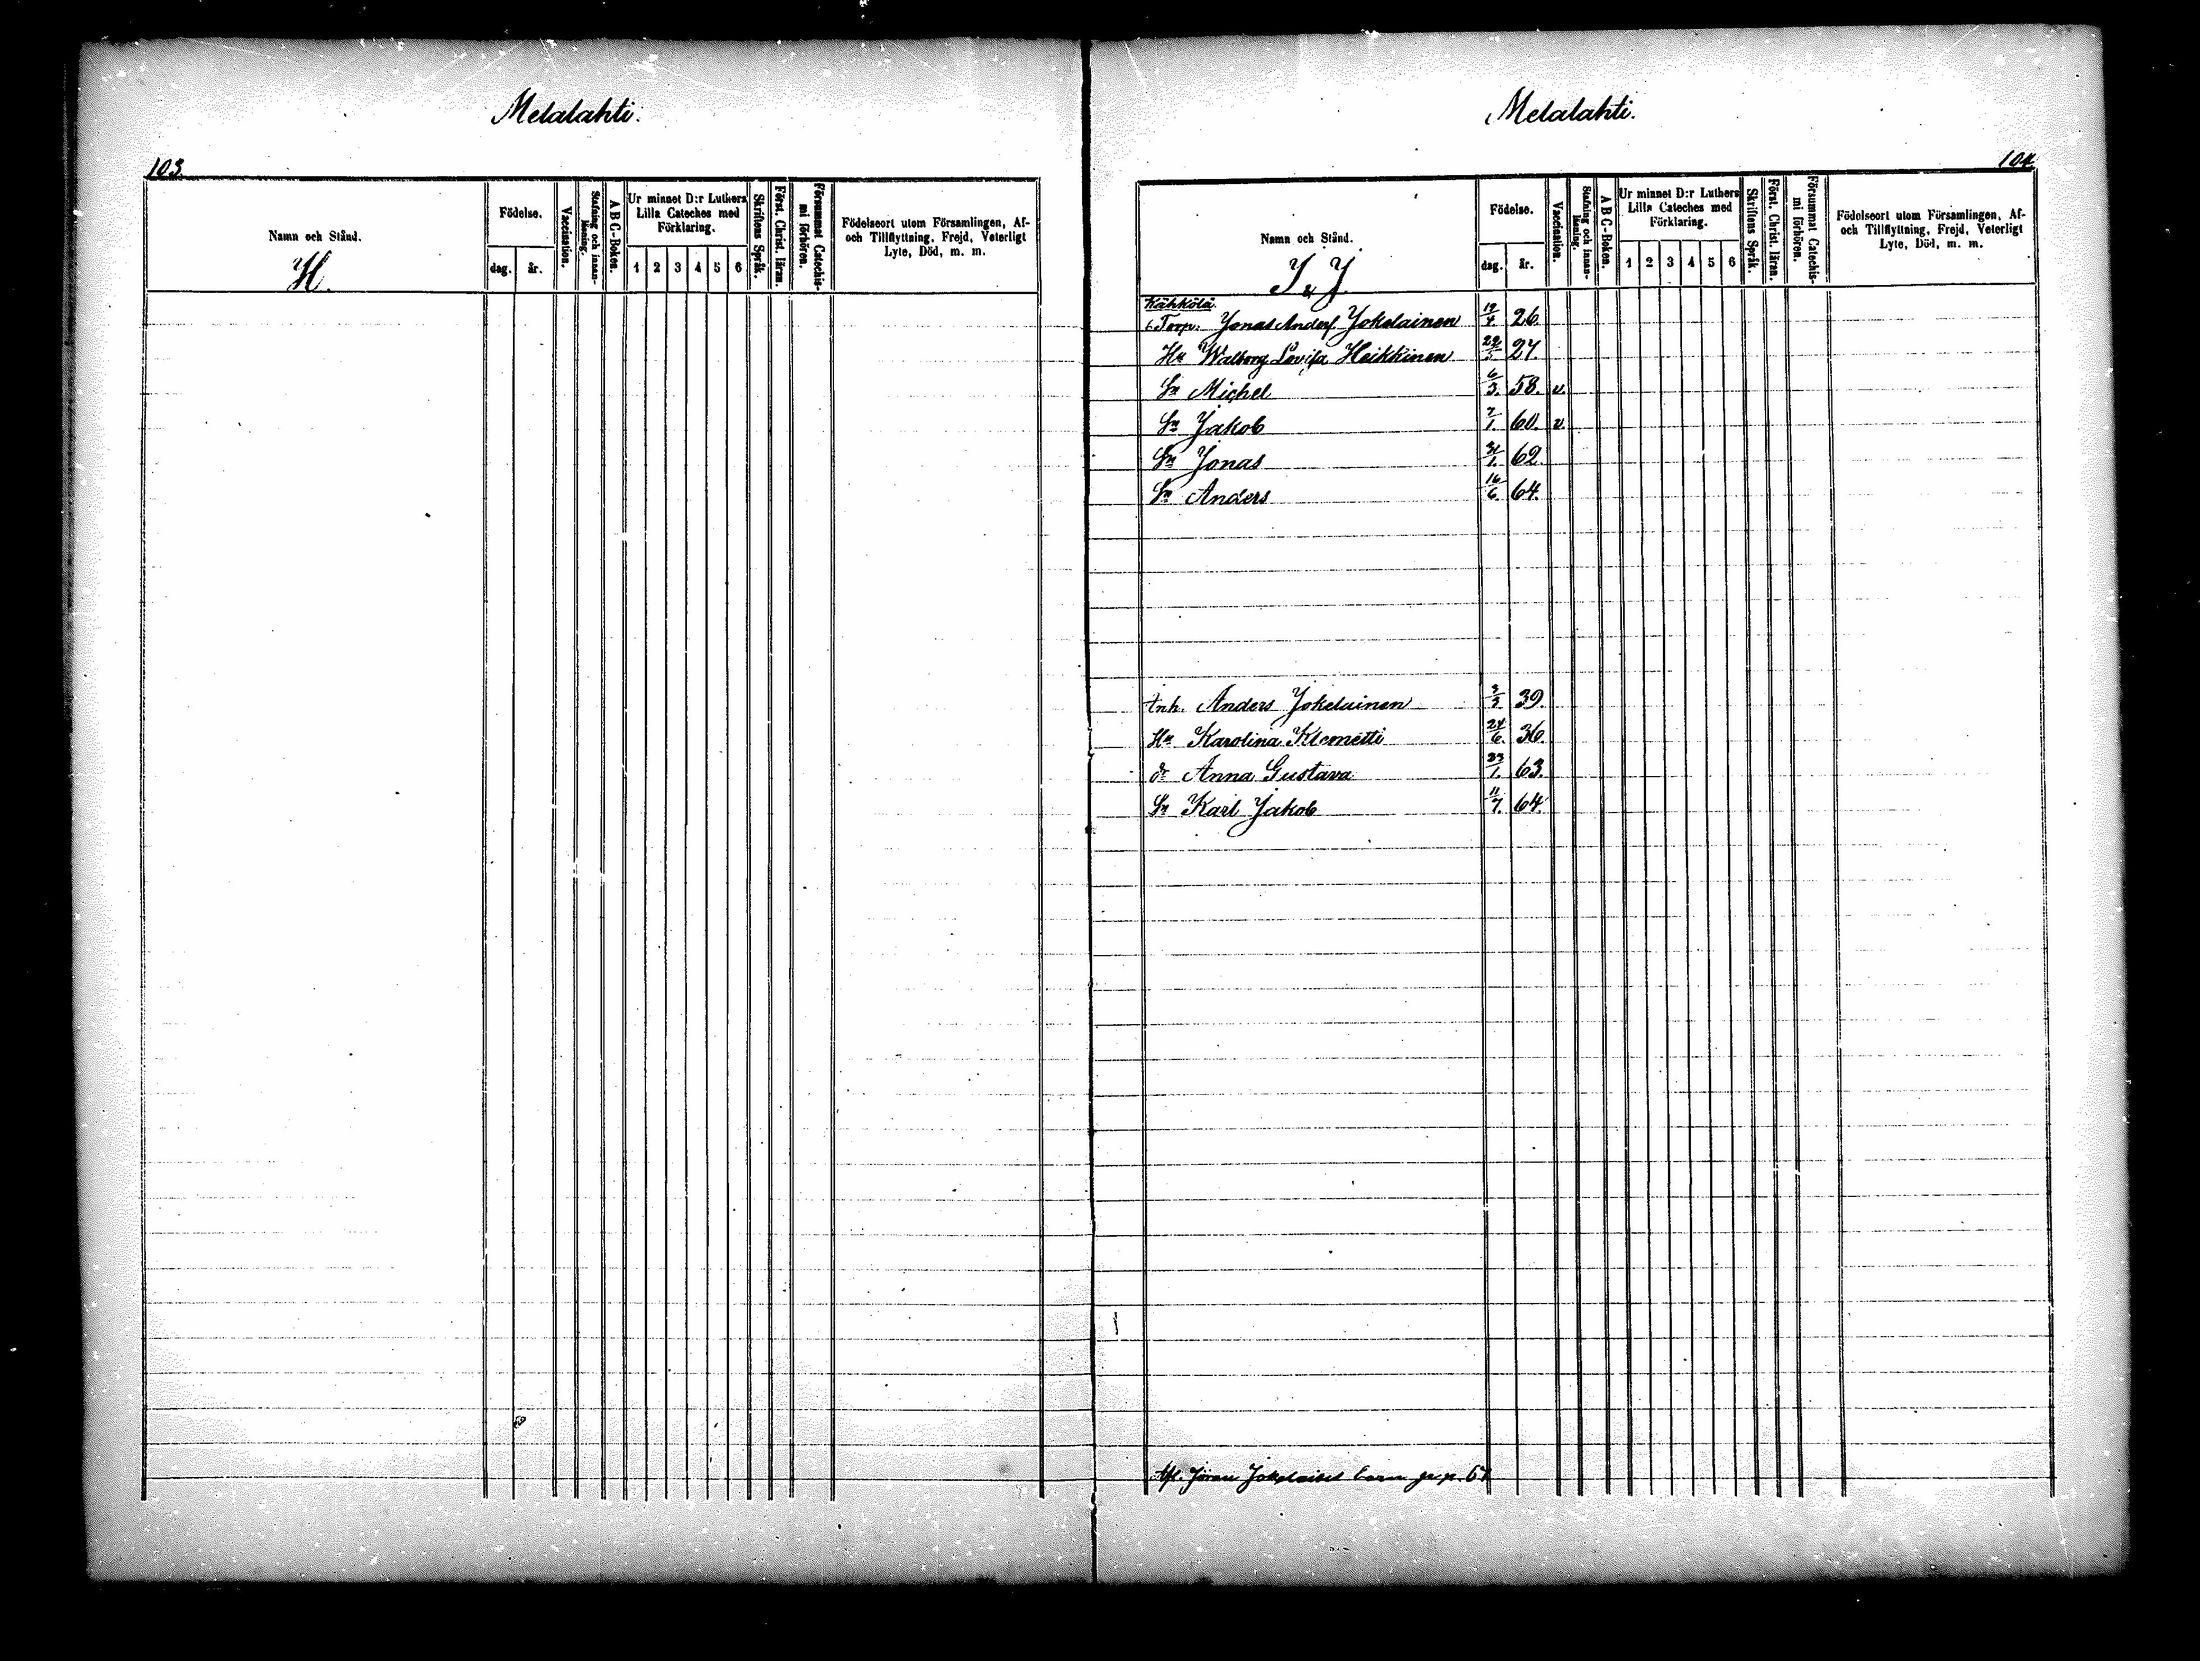 Melalahti.
103.
Namn och Stånd.
H.
Födelse.
dag.
år.
Vaccination.
Stafning och innan-
läsning.
A B C-Boken.
Ur minnet D:r Luthers
Lilla Cateches med
Förklaring.
1 2 3 4 5 6
Skriftens Språk.
Först. Christ. läran.
Försummat Catechis-
mi förhören.
Födelseort utom Församlingen, Af-
och Tillflyttning, Frejd, Veterligt
Lyte, Död, m. m.
Melalahti.
104.
Namn och Stånd.
I & J
Födelse.
dag.
år.
Vaccination.
Stafning och innan-
läsning.
A B C-Boken.
Ur minnet D:r Luthers
Lilla Cateches med
Förklaring.
1 2 3 4 5 6
Skriftens Språk.
Först. Christ. läran.
Försummat Catechis-
mi förhören.
Födelseort utom Församlingen, Af-
och Tillflyttning, Frejd, Veterligt
Lyte, Död, m. m.
Kähkölä.
Torp. Jonas Andersf Jokelainen 12/4 26.
Hu Walborg Lovisa Heikkinen 27.
Sn Michel 6/3. 58. v.
Sn Jakob 7/1. 60. v.
Sn Jonas 31/1. 62.
Sn Anders 16/6. 64.
Inh. Anders Jokelainen 3/3 39.
Hu Karolina Klemetti 24/6. 36.
dr Anna Gustava 23/1. 63.
Sn Karl Jakob 11/7. 64.
Afl. Jöran Jokelaises barn p.